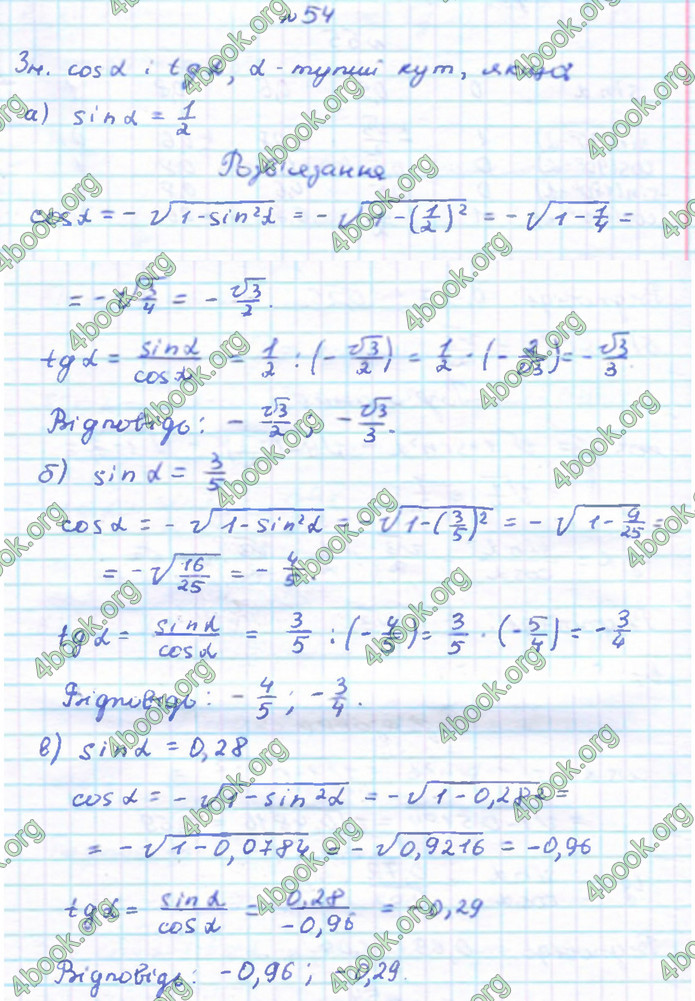 № 54
Зн. cos α і tg α, α - тупий кут, якщо
а) sin α = 1/2
Розв'язання
cos α = - √(1 - sin²α) = - √(1 - (1/2)²) = - √(1 - 1/4) =
= - √(3/4) = - √3/2.
tg α = sin α/cos α = 1/2 : (- √3/2) = 1/2 · (- 2/√3) = - √3/3
Відповідь: - √3/2; - √3/3.
б) sin α = 3/5
cos α = - √(1 - sin²α) = - √(1 - (3/5)²) = - √(1 - 9/25) =
= - √(16/25) = - 4/5.
tg α = sin α/cos α = 3/5 : (- 4/5) = 3/5 · (- 5/4) = - 3/4
Відповідь: - 4/5; - 3/4.
в) sin α = 0,28
cos α = - √(1 - sin²α) = - √(1 - 0,28²) =
= - √(1 - 0,0784) = - √0,9216 = -0,96
tg α = sin α/cos α = 0,28/-0,96 = -0,29
Відповідь: -0,96; -0,29.
4book.org